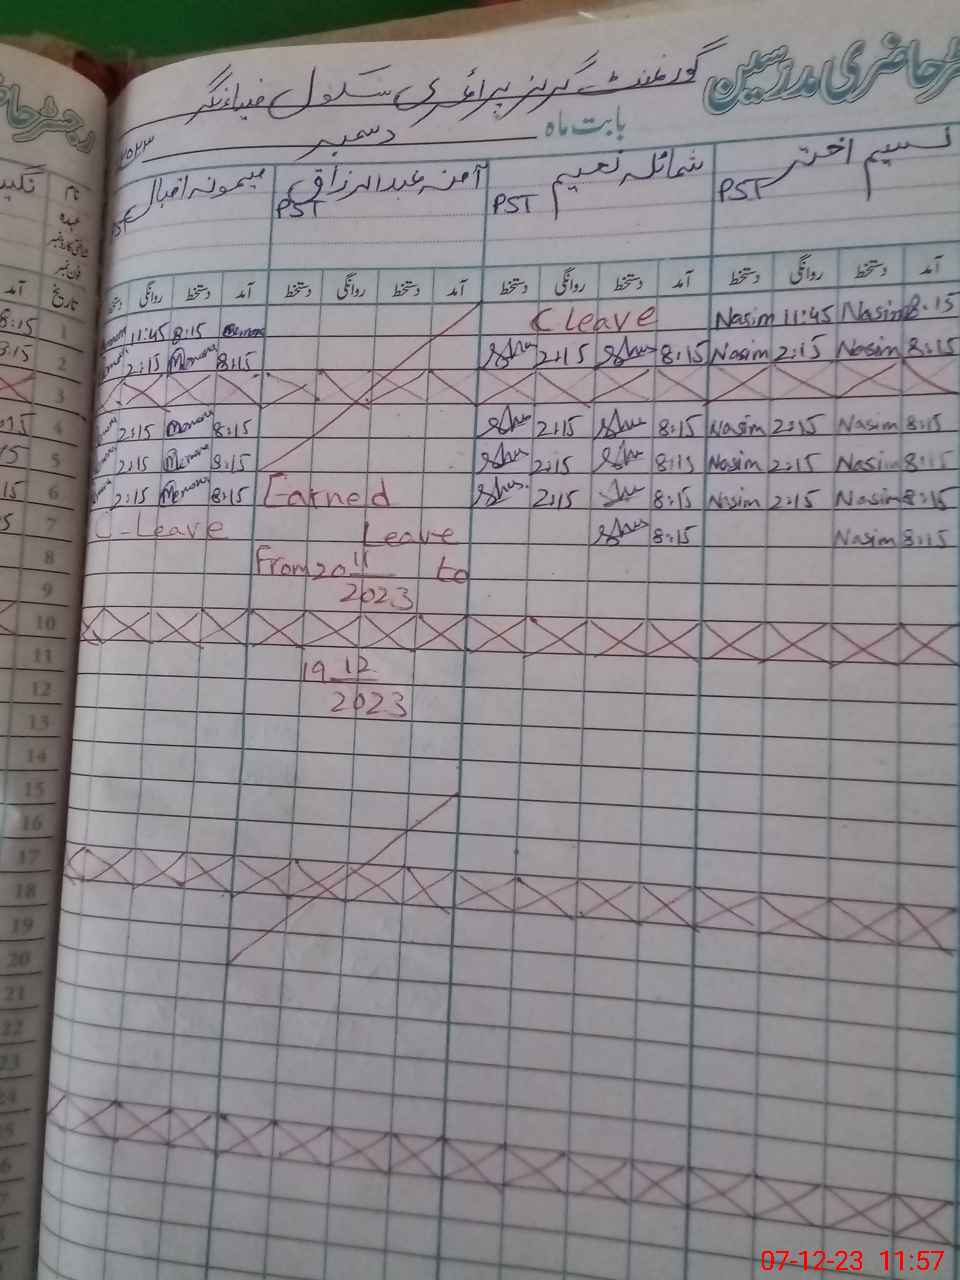 رجسٹر حاضری مدرسین
گورنمنٹ گرلز پرائمری سکول ضیاء نگر
بابت ماہ دسمبر ۲۰۲۳
نسیم اختر شمائلہ نعیم آمنہ عبدالرزاق میمونہ اقبال
PST PST PST PST
نام
عہدہ
تاریخ
آمد دستخط روانگی دستخط آمد دستخط روانگی دستخط آمد دستخط روانگی دستخط آمد دستخط روانگی دستخط
1 11:45 8:15 C Leave Nasim 11:45 Nasim 8:15
2 2:15 Memona 8:15 Shu 2:15 Shu 8:15 Nasim 2:15 Nasim 8:15
3
4 2:15 Memona 8:15 Shu 2:15 Shu 8:15 Nasim 2:15 Nasim 8:15
5 2:15 Memona 8:15 Shu 2:15 Shu 8:15 Nasim 2:15 Nasim 8:15
6 2:15 Memona 8:15 Earned Shu 2:15 Shu 8:15 Nasim 2:15 Nasim 8:15
7 C-Leave Leave Shu 8:15 Nasim 8:15
8 From 20 11 to
9 2023
10
11 19 12
12 2023
13
14
15
16
17
18
19
20
21
22
23
24
07-12-23 11:57